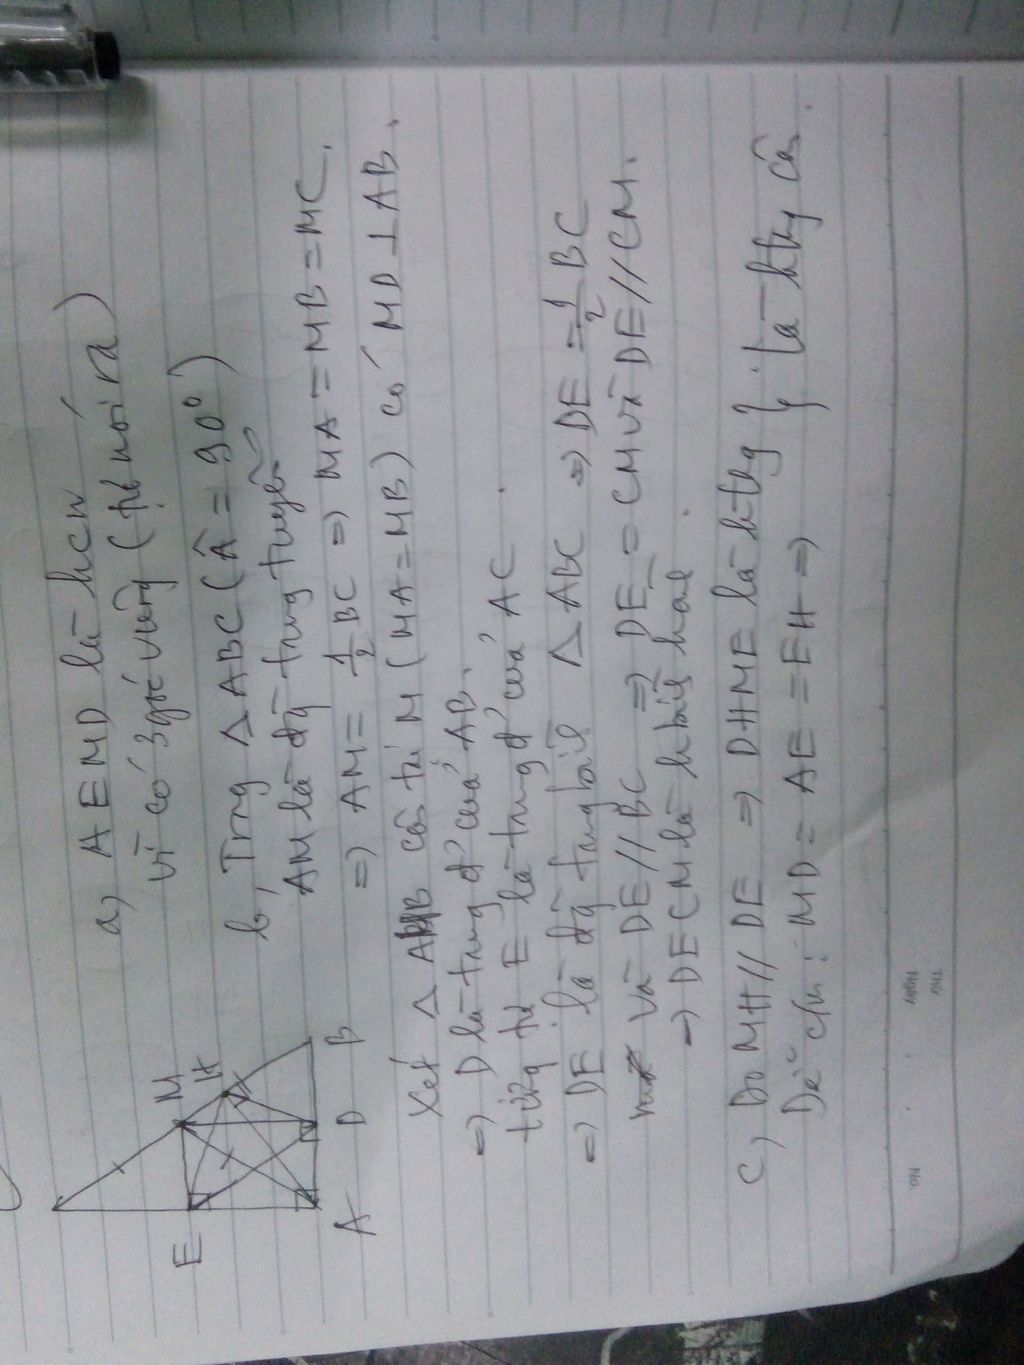 M
H
E
A
D
B
a) AEMD là hcn
vì có 3 góc vuông (pk nói ra)
b, Trong △ ABC (Â = 90⁰)
AM là đg trung tuyến
=> AM = 1/2 BC => MA = MB = MC.
Xét △ AMB cân tại M (MA = MB) có MD ⊥ AB.
=> D là trung đ' của AB.
tương tự E là trung đ' của AC.
=> DE là đg trung bình △ ABC => DE = 1/2 BC
và DE // BC => DE = CM và DE // CM.
=> DECM là h bình hành.
c) Do MH // DE => DHME là hthg } là hthg cân.
Dễ c/m : MD = AE = EH =>
No.
Thứ
Ngày